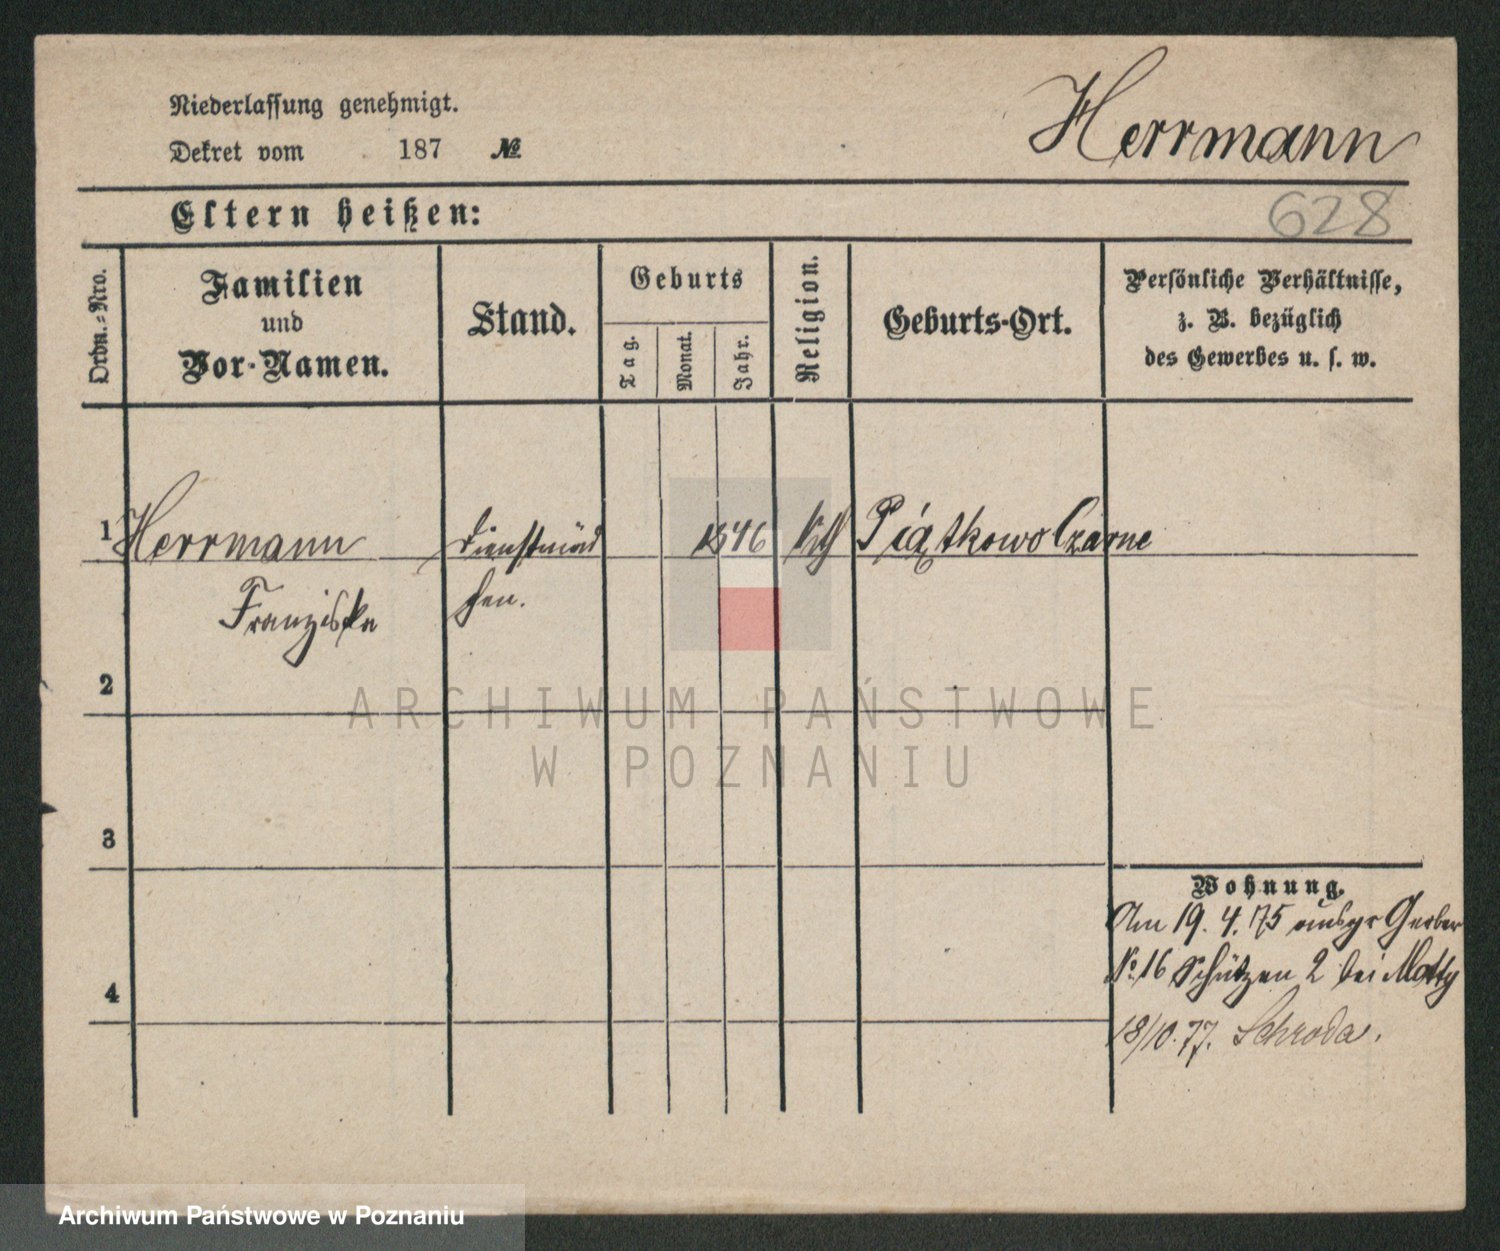 Niederlassung genehmigt.
Dekret vom 187 №
Herrmann
Eltern heißen:
628
Ordn.-Nro.
Familien
und
Vor-Namen.
Stand.
Geburts
Tag.
Monat.
Jahr.
Religion.
Geburts-Ort.
Persönliche Verhältnisse,
z. B. bezüglich
des Gewerbes u. s. w.
1 Herrmann Dienstmäd 1846 Kth Piątkowo Czarne
Franziska chen.
2
ARCHIWUM PAŃSTWOWE
W POZNANIU
3
Wohnung.
Am 19. 4. 75 Gerber
No. 16 Schützen 2 bei Motty
4
18/10. 77. Schroda.
Archiwum Państwowe w Poznaniu